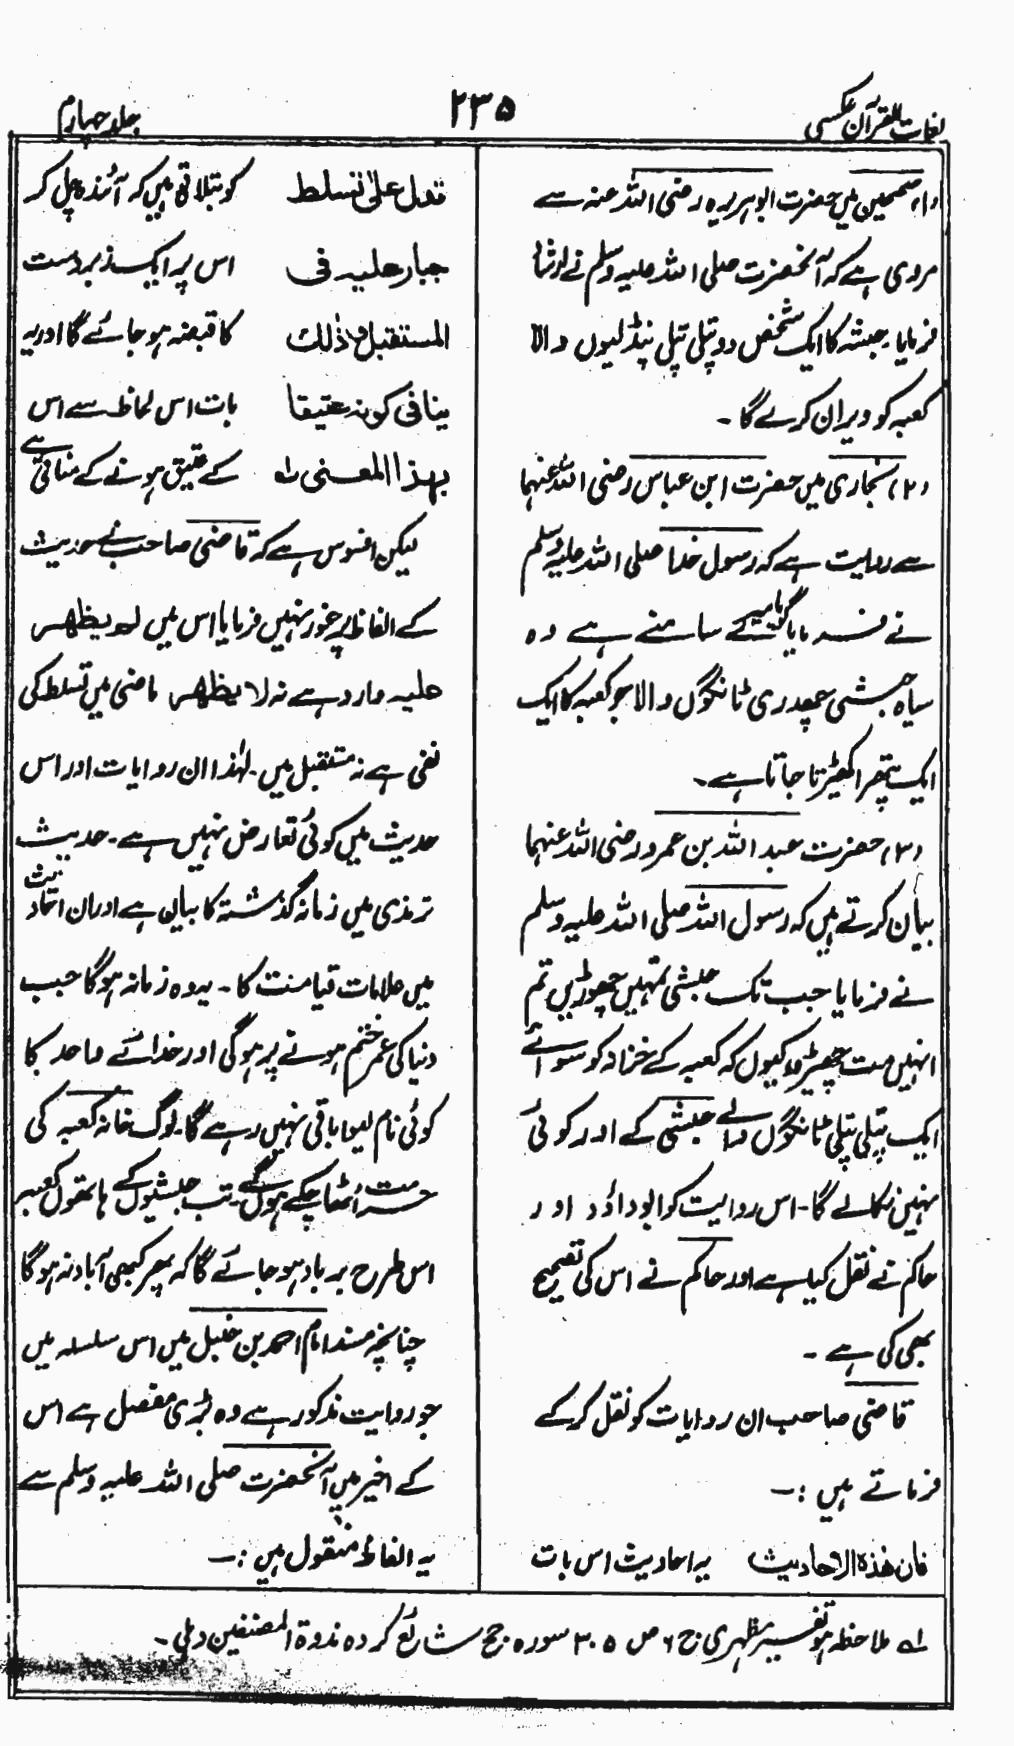 لغات القرآن عکسی
۲۳۵
جلد چہارم
(۱) صحیحین میں حضرت ابوہریرہ رضی اللہ عنہ سے
مروی ہے کہ آنحضرت صلی اللہ علیہ وسلم نے ارشاد
فرمایا۔ حبشہ کا ایک شخص دو پتلی پتلی پنڈلیوں والا
کعبہ کو ویران کرے گا ۔
(۲) بخاری میں حضرت ابن عباس رضی اللہ عنہما
سے روایت ہے کہ رسول خدا صلی اللہ علیہ وسلم
نے فرمایا گویا میرے سامنے ہے وہ
سیاہ حبشی چھدری ٹانگوں والا جو کعبہ کا ایک
ایک پتھر اکھیڑتا جاتا ہے۔
(۳) حضرت عبد اللہ بن عمرو رضی اللہ عنہما
بیان کرتے ہیں کہ رسول اللہ صلی اللہ علیہ وسلم
نے فرمایا جب تک حبشی تمہیں چھوڑیں تم
انہیں مت چھیڑو کیوں کہ کعبہ کے خزانہ کو سوائے
ایک پتلی پتلی ٹانگوں والے حبشی کے اور کوئی
نہیں نکالے گا۔ اس روایت کو ابو داؤد اور
حاکم نے نقل کیا ہے اور حاکم نے اس کی تصحیح
بھی کی ہے ۔
قاضی صاحب ان روایات کو نقل کرکے
فرماتے ہیں :۔
فان ھٰذہ الاحادیث یہ احادیث اس بات
تدل علیٰ تسلط کو بتلاتی ہیں کہ آئندہ چل کر
جبار علیہ فی اس پر ایک زبردست
المستقبل وذٰلک کا قبضہ ہو جائے گا اور یہ
ینافی کونہ عتیقا بات اس لحاظ سے اس
بہذا المعنی لہ کے عتیق ہونے کے منافی ہے
لیکن افسوس ہے کہ قاضی صاحب نے حدیث
کے الفاظ پر غور نہیں فرمایا اس میں لم یظھر
علیہ وارد ہے نہ لا یظھر ماضی میں تسلط کی
نفی ہے نہ مستقبل میں۔ لہٰذا ان روایات اور اس
حدیث میں کوئی تعارض نہیں ہے۔ حدیث
ترمذی میں زمانہ گذشتہ کا بیان ہے اور ان احادیث
میں علامات قیامت کا۔ یہ وہ زمانہ ہوگا جب
دنیا کی عمر ختم ہونے پر ہوگی اور خدائے واحد کا
کوئی نام لیوا باقی نہیں رہے گا۔ لوگ خانہ کعبہ کی
حرمت اٹھا چکے ہوں گے۔ تب حبشیوں کے ہاتھوں کعبہ
اس طرح برباد ہو جائے گا کہ پھر کبھی آباد نہ ہوگا
چنانچہ مسند امام احمد بن حنبل میں اس سلسلہ میں
جو روایت مذکور ہے وہ بڑی مفصل ہے اس
کے اخیر میں آنحضرت صلی اللہ علیہ وسلم سے
یہ الفاظ منقول ہیں :۔
لہ ملاحظہ ہو تفسیر مظہری ج ۶ ص ۳۰۵ سورہ حج شائع کردہ ندوۃ المصنفین دہلی ۔